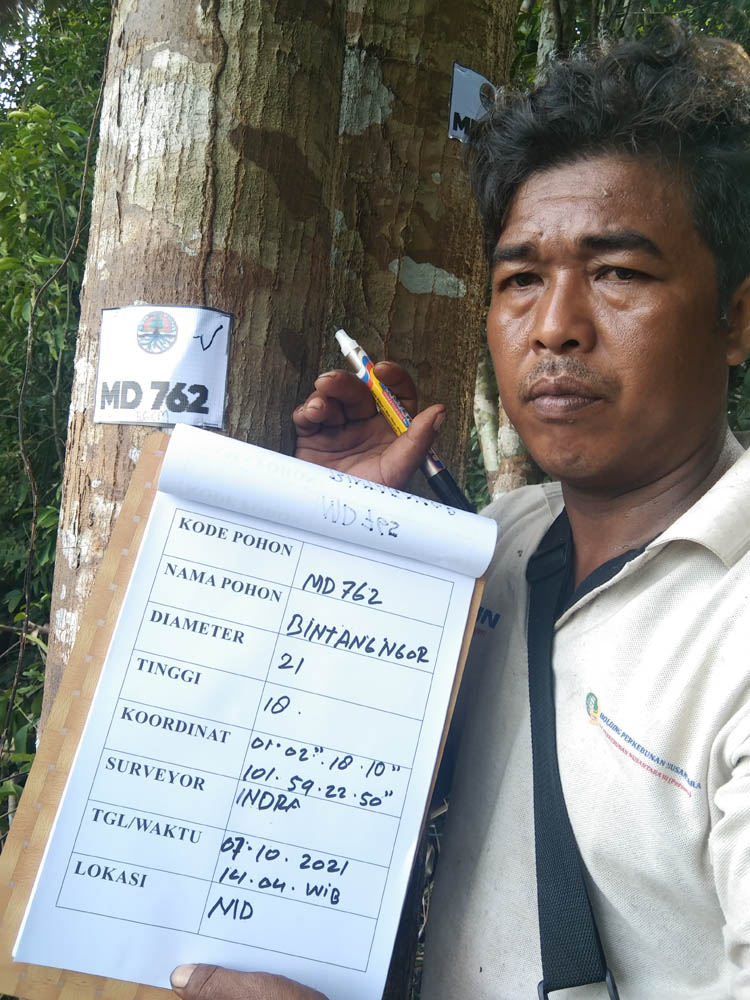 M
MD 762
MD 762
KODE POHON MD 762
NAMA POHON BINTANGINGOR
DIAMETER 21
TINGGI 18.
KOORDINAT 01° 02" . 18 . 10"
101 . 59 . 22 . 50"
SURVEYOR INDRA
TGL/WAKTU 07 . 10 . 2021
14 . 04 . WIB
LOKASI MD
HOLDING PERKEBUNAN NUSANTARA
PT PERKEBUNAN NUSANTARA III (Persero)